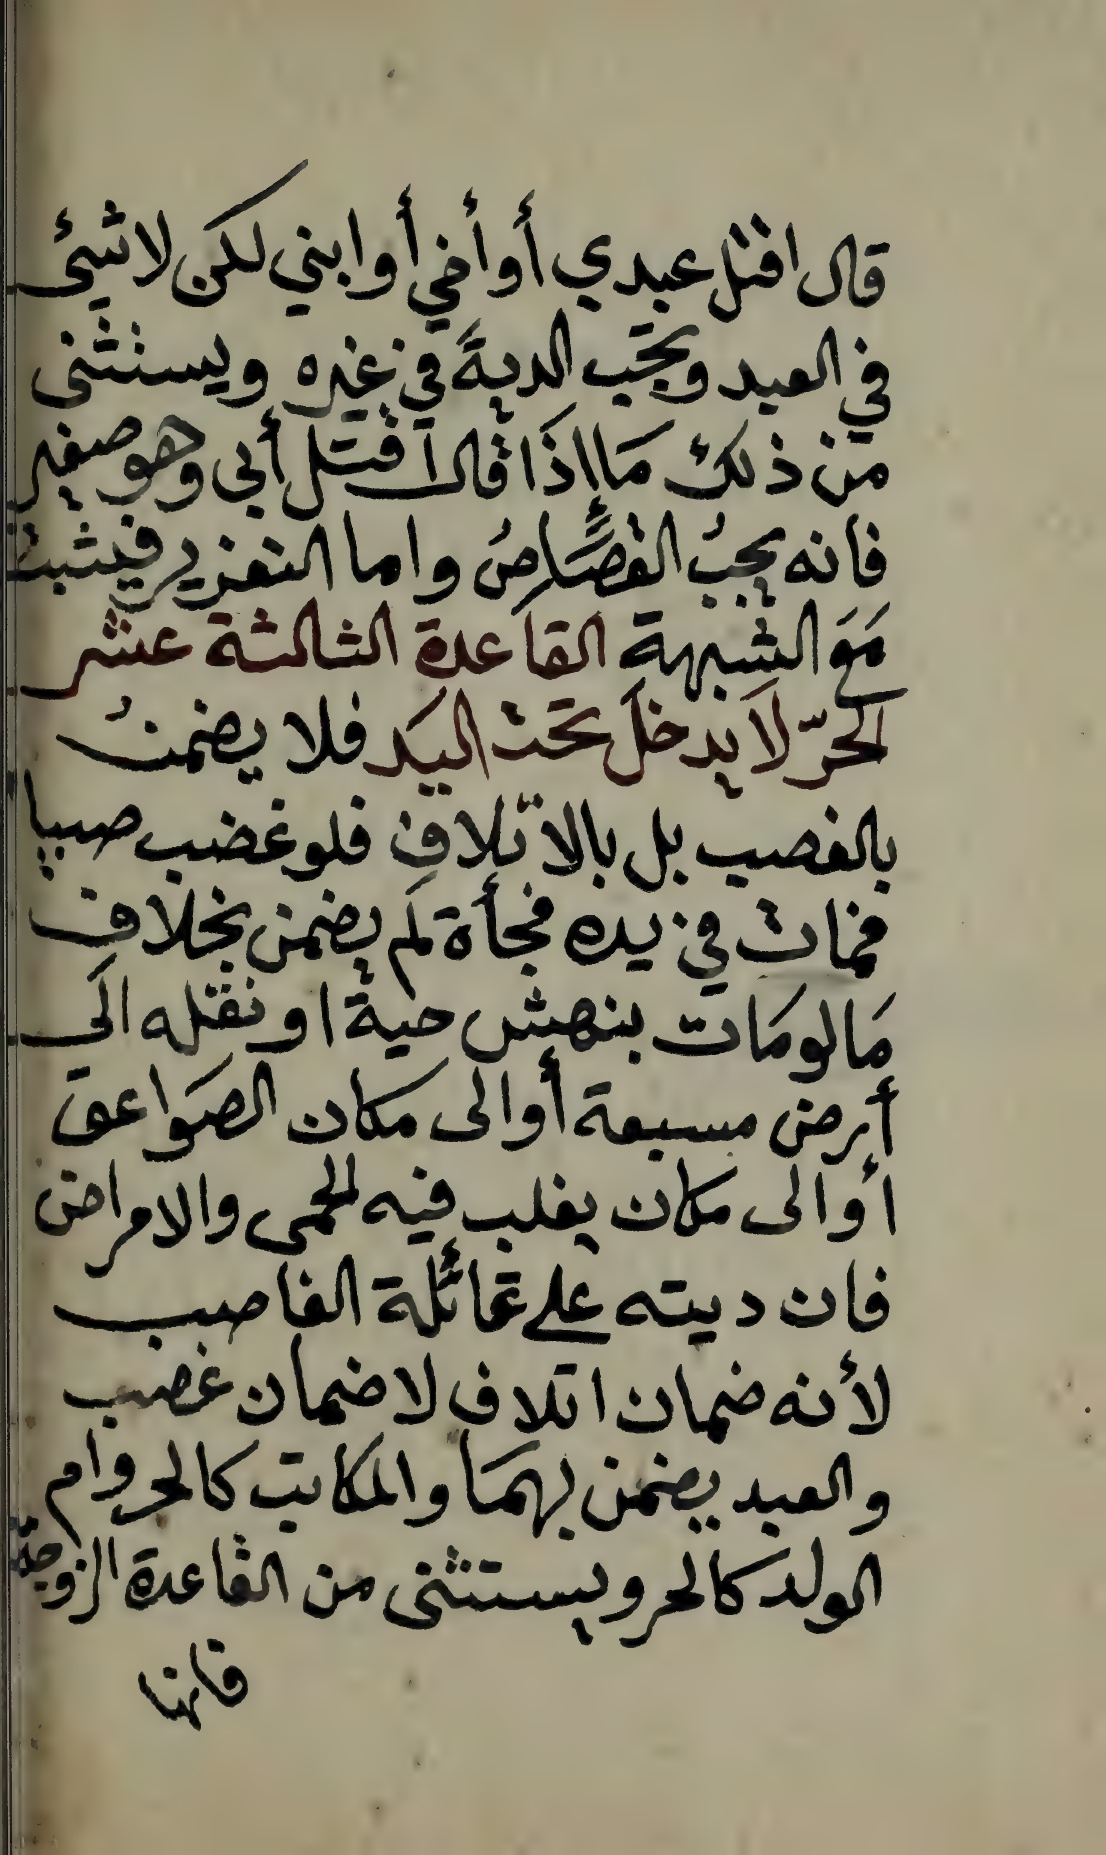 قال اقتل عبدي أو أخي أو ابني لكن لا شيئ
في العبد وتجب الدية في غيره ويستثنى
من ذلك ما إذا قال اقتل أبي وهو صغير
فانه يجب القصاص واما التعزير فيثبت
مع الشبهة القاعدة الثالثة عشر
الحرّ لا يدخل تحت اليد فلا يضمن
بالغصب بل بالاتلاف فلو غضب صبيا
فمات في يده فجأة لم يضمن بخلاف
ما لو مات بنهش حية او نقله الى
أرض مسبعة أو الى مكان الصواعق
أو الى مكان يغلب فيه الحمى والامراض
فان ديته على عائلة الغاصب
لأنه ضمان اتلاف لا ضمان غضب
والعبد يضمن بهما والمكاتب كالحر وام
الولد كالحر ويستثنى من القاعدة الزوجة
فانها